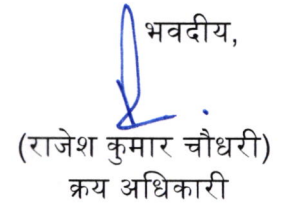 भवदीय,
(राजेश कुमार चौधरी)
क्रय अधिकारी